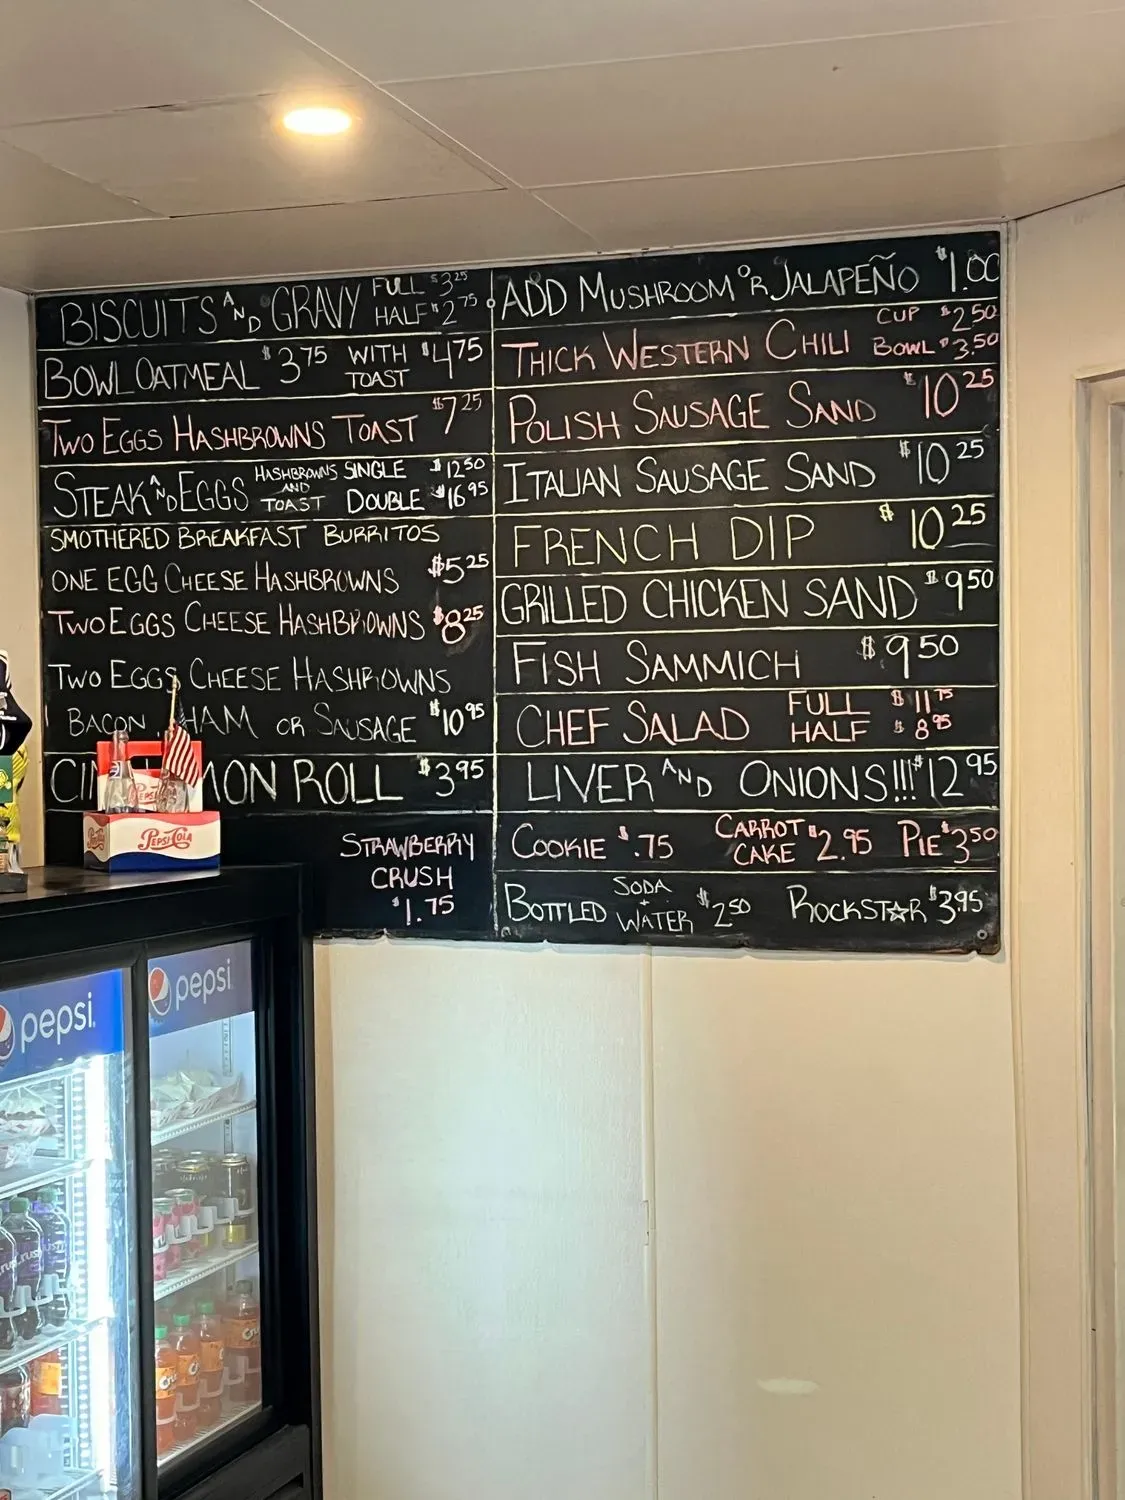 BISCUITS AND GRAVY FULL $3.25
HALF $2.75
BOWL OATMEAL $3.75 WITH TOAST $4.75
TWO EGGS HASHBROWNS TOAST $7.25
STEAK AND EGGS HASHBROWNS AND TOAST SINGLE $12.50
DOUBLE $16.95
SMOTHERED BREAKFAST BURRITOS
ONE EGG CHEESE HASHBROWNS $5.25
TWO EGGS CHEESE HASHBROWNS $8.25
TWO EGGS CHEESE HASHROWNS
BACON HAM OR SAUSAGE $10.95
CIN MON ROLL $3.95
STRAWBERRY
CRUSH
$1.75
ADD MUSHROOM OR JALAPEÑO $1.00
THICK WESTERN CHILI CUP $2.50
BOWL $3.50
POLISH SAUSAGE SAND $10.25
ITALIAN SAUSAGE SAND $10.25
FRENCH DIP $10.25
GRILLED CHICKEN SAND $9.50
FISH SAMMICH $9.50
CHEF SALAD FULL $11.75
HALF $8.95
LIVER AND ONIONS!!! $12.95
COOKIE $.75 CARROT CAKE $2.95 PIE $3.50
BOTTLED SODA + WATER $2.50 ROCKST☆R $3.95
PEPSI-COLA
pepsi
pepsi